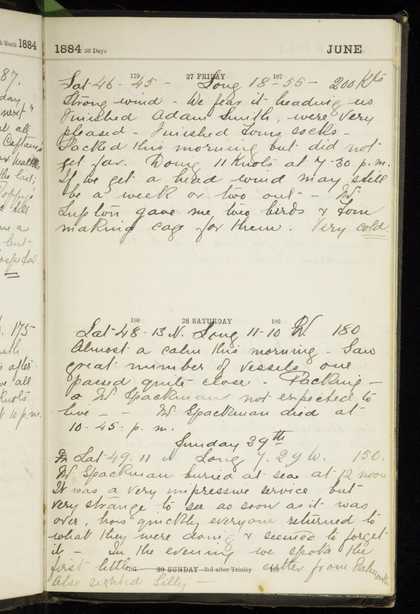 1884
1884 30 Days JUNE.
179 27 FRIDAY 187
Lat 46 - 45 - Long 18-55 - 200 Kts
Strong wind - We fear it heading us
Finished Adam Smith, were very
pleased - Finished Toms socks -
Packed this morning but did not
get far. Doing 11 Knots at 7-30. p.m.
If we get a head wind may still
be a week or two out - Mr
Lupton gave me two birds & Tom
making cage for them. Very cold
180 28 SATURDAY 186
Lat-48-13 N. Long 11-10 W 180
Almost a calm this morning - Saw
great number of vessels, one
passed quite close. Packing -
a Mr Spackman not expected to
live - - Mr Spackman died at
10-45. p. m.
Sunday 29th
Lat-49.11 N Long 7.29 W. 150.
Mr Spackman buried at sea at 12 noon
It was a very impressive service but
very strange to see as soon as it was
over, how quickly everyone returned to
what they were doing & seemed to forget
it - In the evening we spoke the
first little cutter from Falmouth
29 SUNDAY-3rd after Trinity
Also sighted Scilly -